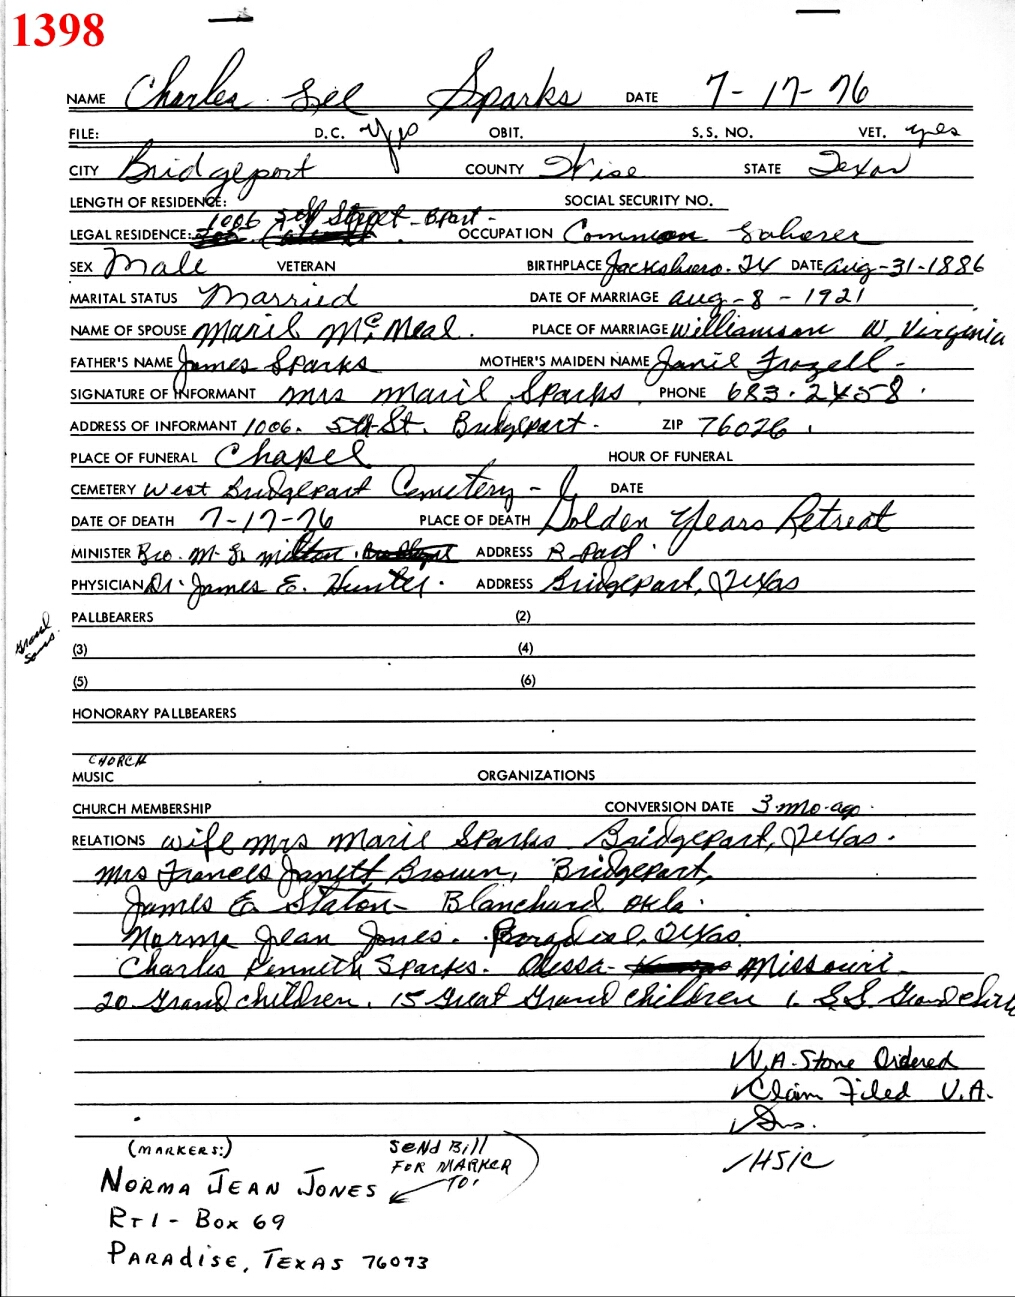 1398
NAME Charles Lee Sparks DATE 7-17-76
FILE: D.C. OBIT. S.S. NO. VET. yes
CITY Bridgeport COUNTY Wise STATE Texas
LENGTH OF RESIDENCE: SOCIAL SECURITY NO.
1006 5th Street - Bport -
LEGAL RESIDENCE: OCCUPATION Common Laborer
SEX Male VETERAN BIRTHPLACE Jacksboro. TX DATE Aug-31-1886
MARITAL STATUS Married DATE OF MARRIAGE Aug-8-1921
NAME OF SPOUSE Marie McNeal. PLACE OF MARRIAGE Williamson W, Virginia
FATHER'S NAME James Sparks MOTHER'S MAIDEN NAME Janie Frazell-
SIGNATURE OF INFORMANT Mrs Marie Sparks PHONE 683-2458.
ADDRESS OF INFORMANT 1006. 5th St. Bridgeport- ZIP 76026.
PLACE OF FUNERAL Chapel HOUR OF FUNERAL
CEMETERY West Bridgeport Cemetery - DATE
DATE OF DEATH 7-17-76 PLACE OF DEATH Golden Years Retreat
MINISTER Bro. M. L. Milton. ADDRESS B. Port.
PHYSICIAN Dr. James E. Hunter. ADDRESS Bridgeport, Texas
Grand
Sons.
PALLBEARERS (2)
(3) (4)
(5) (6)
HONORARY PALLBEARERS
CHURCH
MUSIC ORGANIZATIONS
CHURCH MEMBERSHIP CONVERSION DATE 3-mo-ago.
RELATIONS Wife Mrs Marie Sparks Bridgeport, Texas.
Mrs Frances Janett Brown, Bridgeport,
James E. Staton- Blanchard Okla.
Norma Jean Jones. Paradise, Texas
Charles Kenneth Sparks. Odessa- Missouri.
20 Grand Children, 15 Great Grand Children 1. Grand
V.A. Stone Ordered
✓Claim Filed V.A.
✓Ins.
✓HSIC
(MARKERS:) SEND BILL
FOR MARKER
TO:
NORMA JEAN JONES
RT 1 - BOX 69
PARADISE, TEXAS 76073